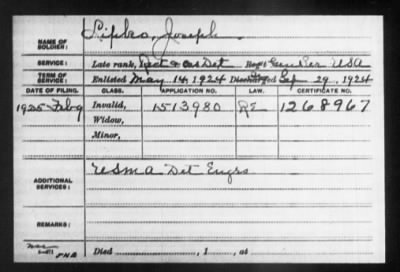 NAME OF SOLDIER: Lipko, Joseph
SERVICE: Late rank, Det Reg't Gen Ser USA
TERM OF SERVICE: Enlisted May 14, 1924 Discharged Sep 29, 1924
DATE OF FILING. CLASS. APPLICATION NO. LAW. CERTIFICATE NO.
1925 Feb 9 Invalid, 1513980 RE 1268967
Widow,
Minor,
ADDITIONAL SERVICES: USMA Det Engrs
REMARKS:
Died , 1 , at